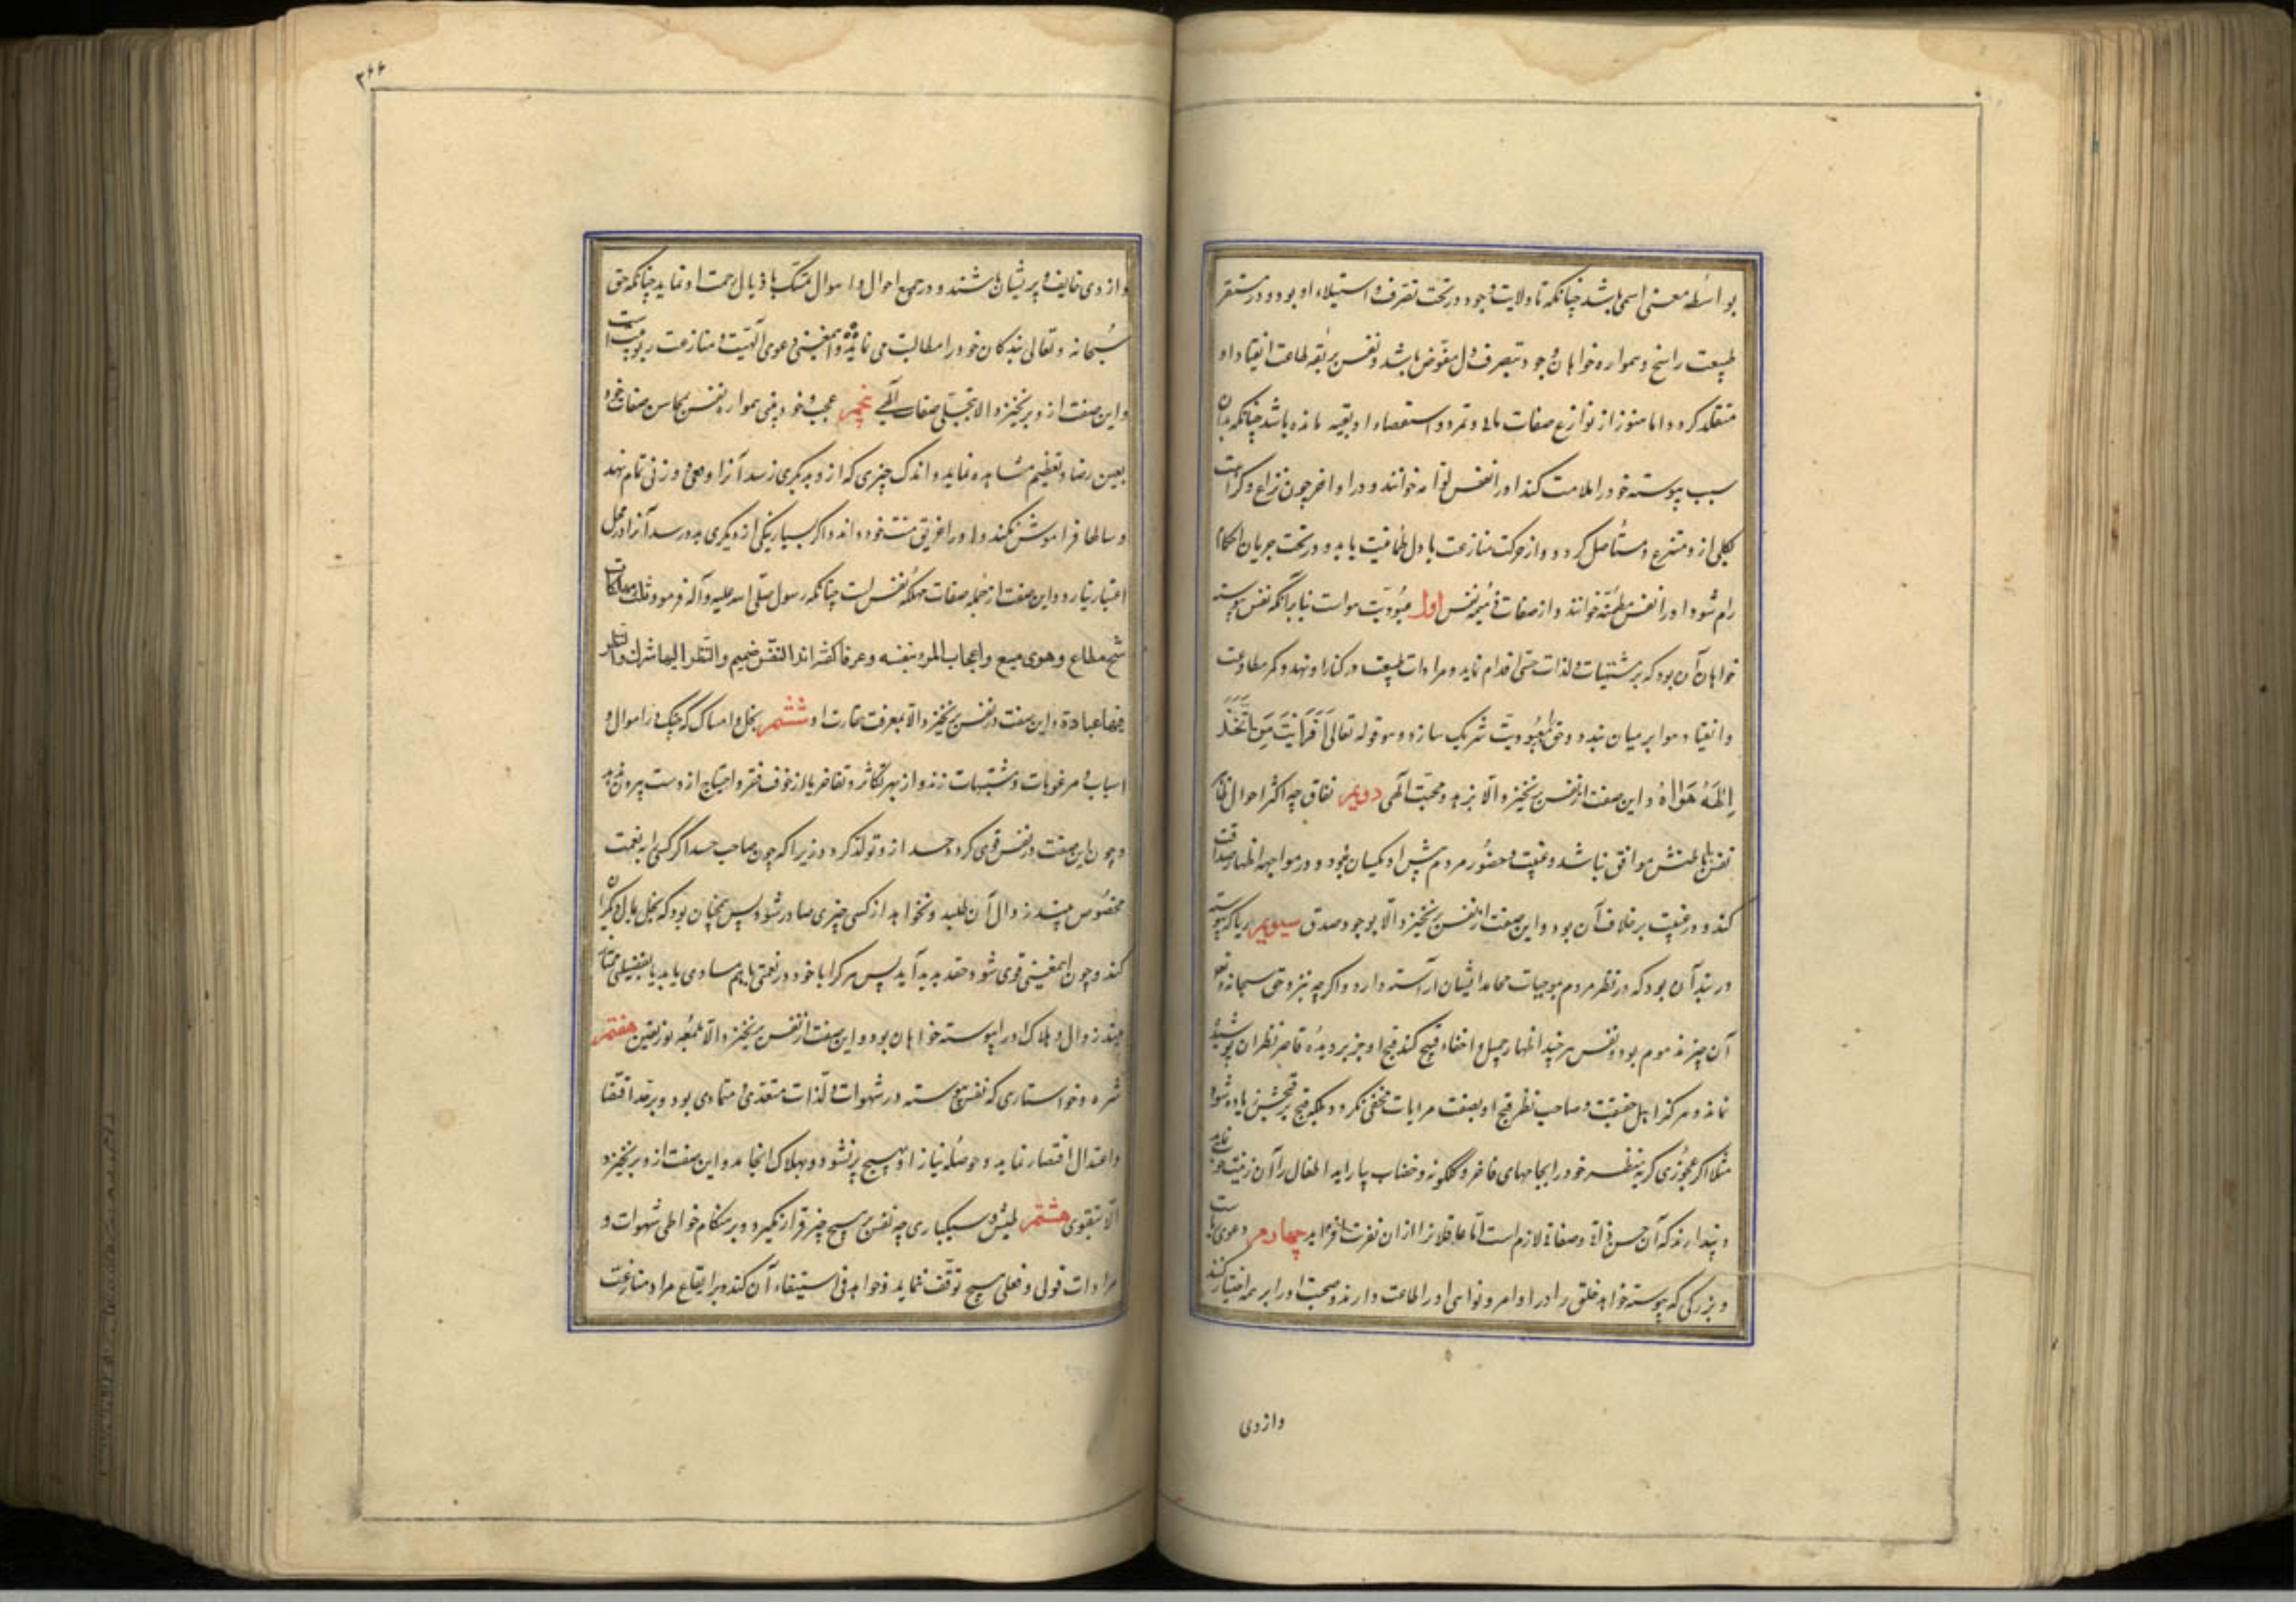 بواسطه معنی اسمی باشد چنانکه تا ولایت وجود در تحت تصرف و استیلاء او بود و در مستقر
طبیعت راسخ و همواره خواهان وجود تبصرف دل مفوّض باشد و نفس بربقه طاعت انقیاد او
متقلد کردد اما هنوز از نوازع صفات او تمرد و استعصاء او بقیه مانده باشد چنانکه بدان
سبب پیوسته خود را ملامت کند او را نفس لوّامه خوانند و در اواخر چون نزاع و کراهت
بکلی ازو منتزع و مستأصل کردد و از حرکت منازعت با دل طمأنیت یابد و در تحت جریان احکام
رام شود او را نفس مطمئنّه خوانند و از صفات ذمیمه نفس اول عبودیّت هواست بنابر آنکه نفس پیوسته
خواهان آن بود که بر مشتهیات و لذات حسّی اقدام نماید و مرادات طبیعت در کنار او نهد و کمر مطاوعت
و انقیاد هوا بر میان بندد و حق را بمعبودیّت شریک سازد و هو قوله تعالی اَفَرَاَیْتَ مَنِ اتَّخَذَ
اِلٰهَهُ هَوٰاهُ و این صفت از نفس برنخیزد الّا بزهد و محبّت الهی دویم نفاق چه اکثر احوال ظاهر
نفس با باطنش موافق نباشد و غیبت و حضور مردم پیش او یکسان نبود و در مواجهه اظهار صداقت
کند و در غیبت بر خلاف آن بود و این صفت از نفس برنخیزد الّا بوجود صدق سیویم ریا که پیوسته
در بند آن بود که در نظر مردم بموجبات محامد ایشان آراسته دارد و اگرچه بنزد حق سبحانه و تعالی
آن چیز مذموم بود و نفس هر چند اظهار جمیل و اخفاء قبیح کند قبح او جز بر دیدهٔ قاصر نظران پوشیده
نماند و هرکز از اهل حقیقت و صاحب نظر قبح او بصفت مرایات مخفی نکردد بلکه قبح بر قبحش زیاده شود
مثلا اکر عجوزی کریه منظر خود را بجامهای فاخر و کلکونه و خضاب بیاراید اطفال را آن زینت خوب نماید
و پندارند که آن حسن ذاتی و صفات لازم است امّا عاقلانرا ازان نفرت افزاید چهارم دعوی ریاست
و بزرکی که پیوسته خواهد خلق را در اوامر و نواهی او را طاعت دارند و محبت او را بر همه اختیار کنند
وازوی
۳۶۶
وازوی خایف و پریشان باشند و در جمیع احوال و اهوال متمسّک باذیال رحمت او نماید چنانکه حق
سُبحانه و تعالی بندکان خود را مطالبت می نماید و این معنی دعوی الهیّت و منازعت ربوبیّت است
و این صفت ازو برنخیزد الا بتجلّی صفات الهی پنجم عجب و خود بینی همواره نفس بمحاسن صفات خود
بعین رضا و تعظیم مشاهده نماید و اندک چیزی که ازو بدیکری رسد آنرا وقعی و وزنی تمام نهد
و سالها فراموش نکند و او را غریق منّت خود داند و اکر بسیار نیکی از دیکری بدو رسد آنرا در محل
اعتبار نیارد و این صفت از جمله صفات مهلکهٔ نفس است چنانکه رسول صلّی الله علیه و آله فرمود ثلث مهلکات
شح مطاع و هوی متبع و اعجاب المرء بنفسه و عرفا کفته اند النفس ضمیم و النظر الیها شرک و النظر
فیها عبادة و این صفت در نفس برنخیزد الّا بمعرفت حقارت او ششم بخل و امساک که چنک در اموال و
اسباب مرغوبات و مشتهیات زند و از بهر تکاثر و تفاخر یا از خوف فقر و احتیاج از دست بیرون ندهد
و چون این صفت در نفس قوی کردد حسد ازو تولّد کردد زیرا که چون صاحب حسد اکر کسی را به نعمت
مخصوص بیند زوال آن طلبد و نخواهد از کسی چیزی صادر شود پس همچنان بود که بخل بمال دیکران
کند و چون این معنی قوی شود حقد پدید آید پس هر کرا با خود در نعمتی باهم مساوی یابد یا بفضیلتی ممتاز
بیند زوال و هلاک او را پیوسته خواهان بود و این صفت از نفس برنخیزد الّا بغلبهٔ نور یقین هفتم
شره و خواستاری که نفس پیوسته در شهوات و لذّات متعدّی و متمادی بود و بر حد اقتصاد
و اعتدال اقتصار ننماید و حوصلهٔ نیاز او بهیچ پر نشود و بهلاک انجامد و این صفت ازو برنخیزد
الّا بتقوی هشتم طیش و سبکباری چه نفس بر هیچ چیز قرار نکیرد و بر هنکام خواطر شهوات و
مرادات قولی و فعلی هیچ توقّف ننماید و خواهد فی استیفاء آن کند و برایقاع مراد منازعت